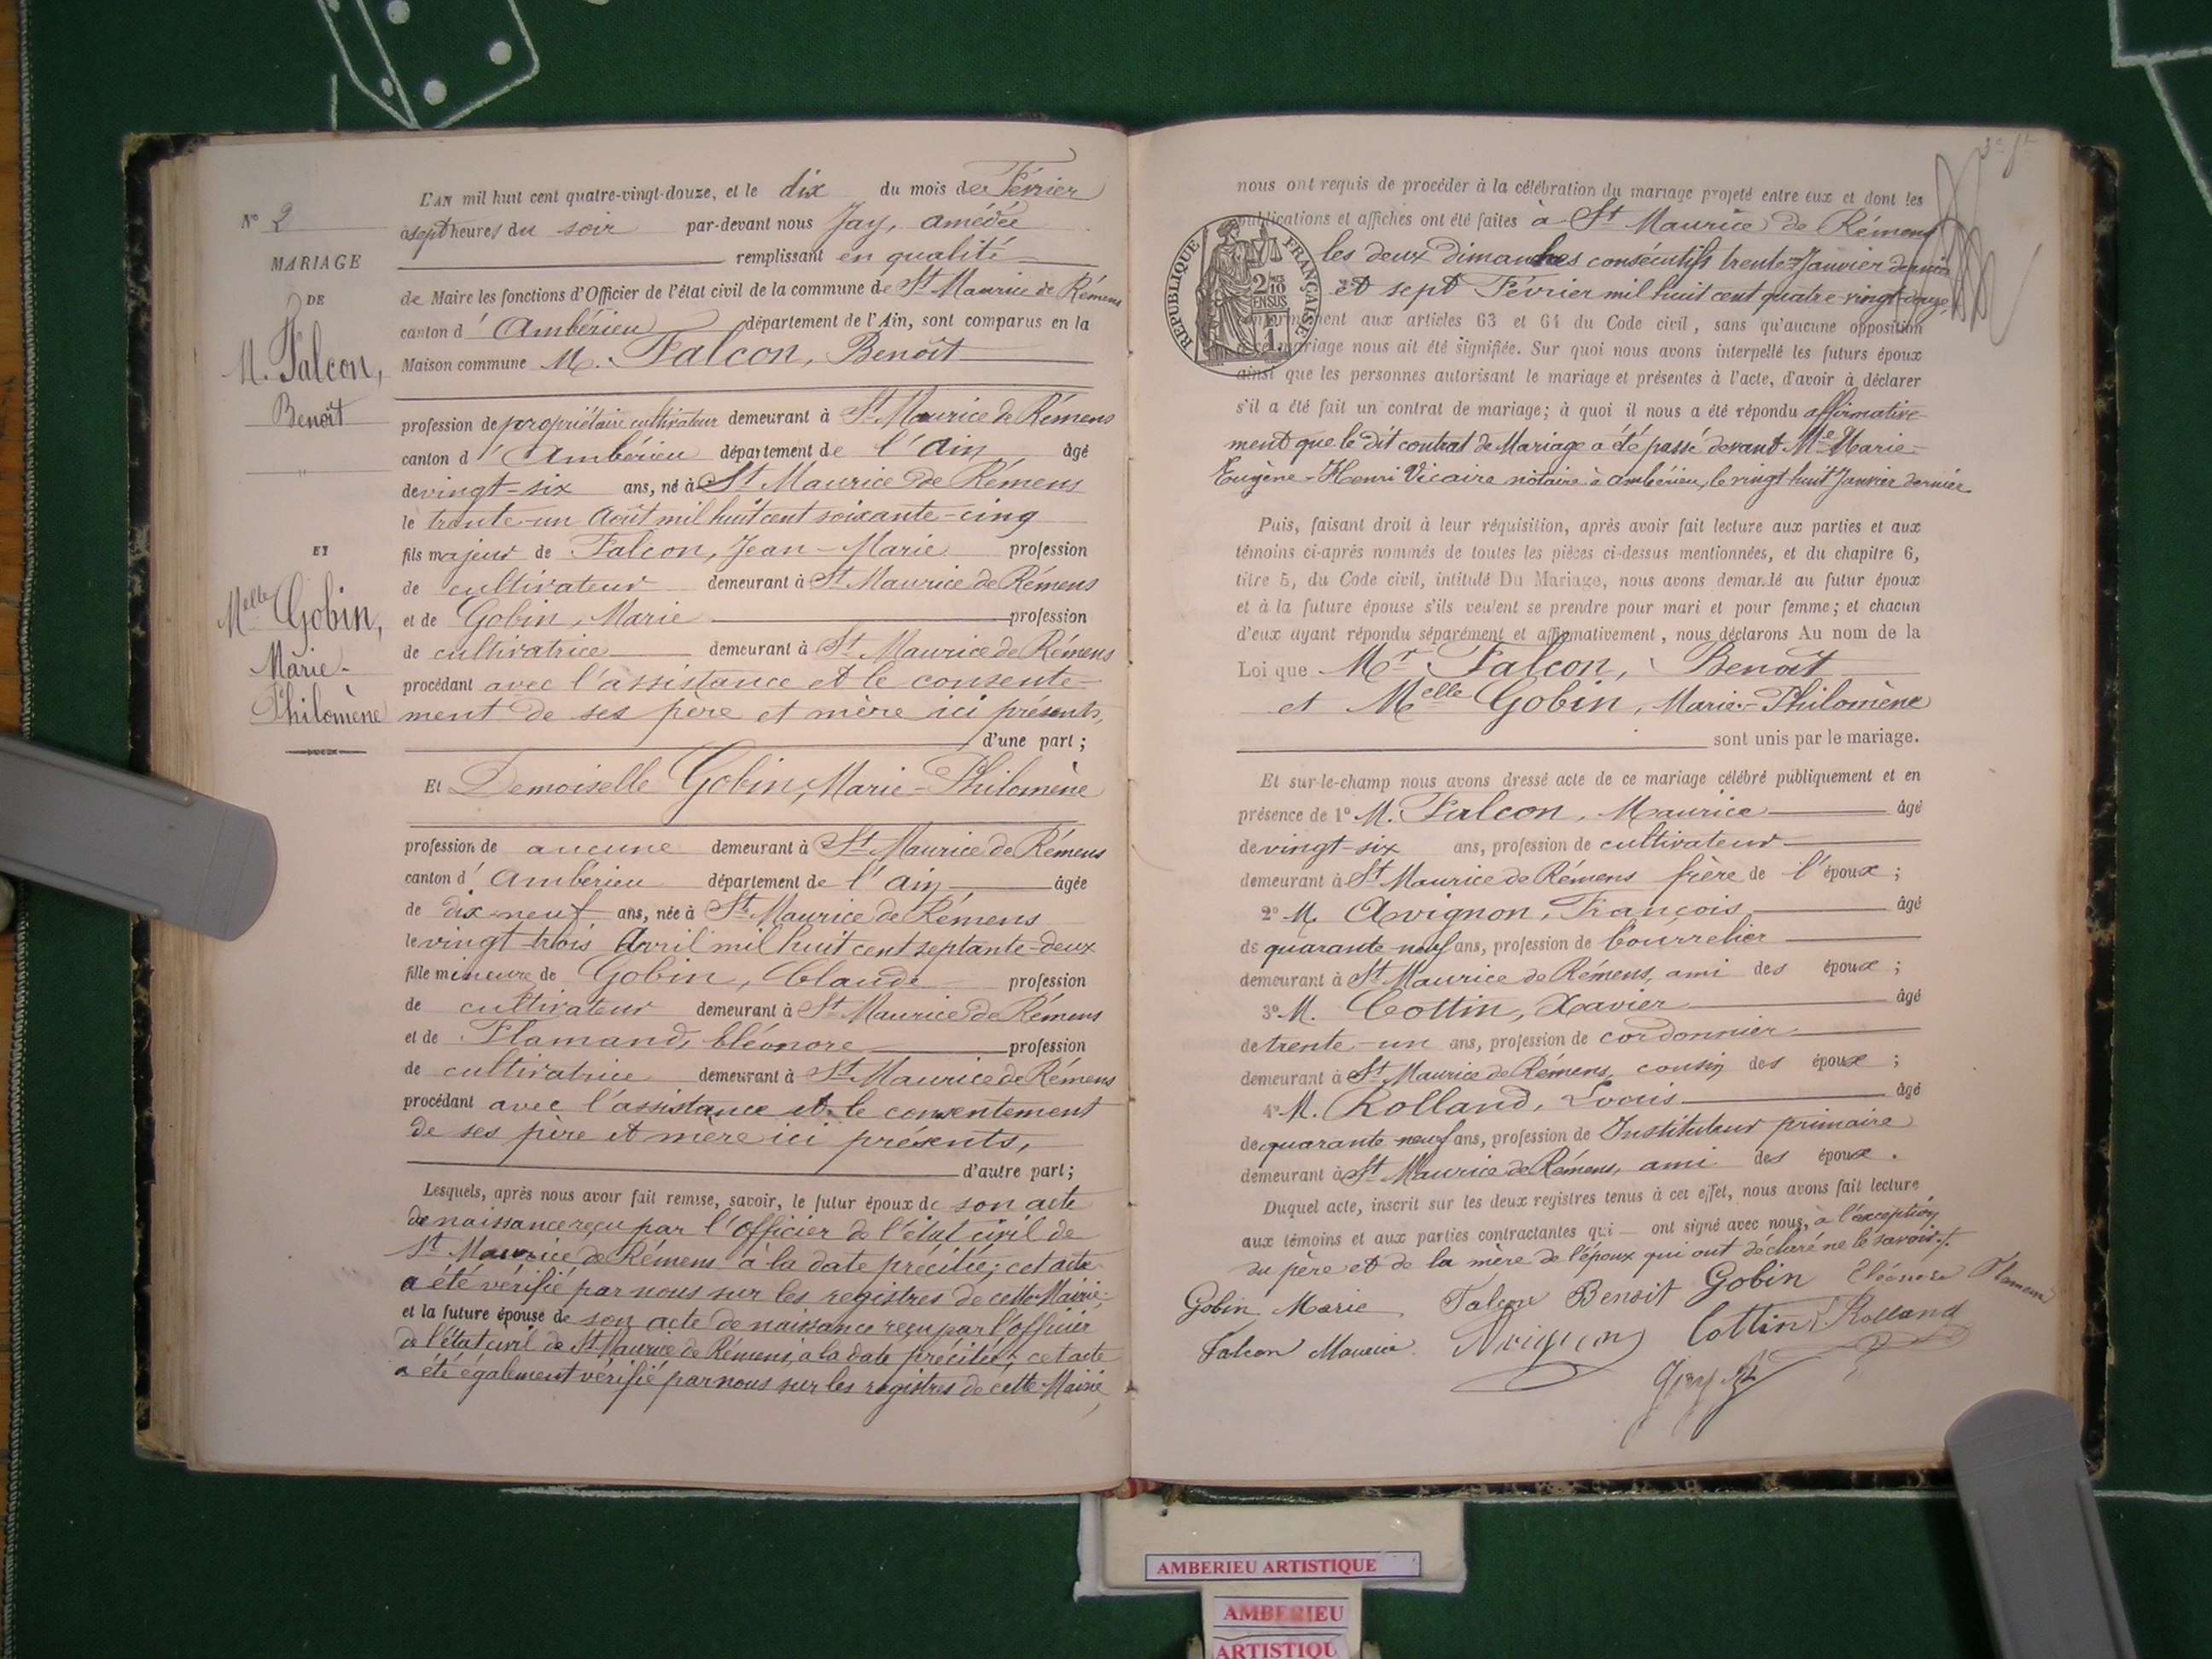 N° 2
MARIAGE
DE
M. Falcon,
Benoît
ET
Melle Gobin,
Marie-
Philomène
L'AN mil huit cent quatre-vingt-douze, et le dix du mois de Février
à sept heures du soir par-devant nous Jay, Amédée
remplissant en qualité
de Maire les fonctions d'Officier de l'état civil de la commune de St Maurice de Rémens
canton d'Ambérieu département de l'Ain, sont comparus en la
Maison commune M. Falcon, Benoît
profession de propriétaire cultivateur demeurant à St Maurice de Rémens
canton d'Ambérieu département de l'Ain âgé
de vingt-six ans, né à St Maurice de Rémens
le trente-un Août mil huit cent soixante-cinq
fils majeur de Falcon, Jean-Marie profession
de cultivateur demeurant à St Maurice de Rémens
et de Gobin, Marie profession
de cultivatrice demeurant à St Maurice de Rémens
procédant avec l'assistance et le consente-
ment de ses père et mère ici présents,
d'une part;
Et Demoiselle Gobin, Marie-Philomène
profession de aucune demeurant à St Maurice de Rémens
canton d'Ambérieu département de l'Ain âgée
de dix-neuf ans, née à St Maurice de Rémens
le vingt-trois Avril mil huit cent septante-deux
fille mineure de Gobin, Claude profession
de cultivateur demeurant à St Maurice de Rémens
et de Flamand, Eléonore profession
de cultivatrice demeurant à St Maurice de Rémens
procédant avec l'assistance et le consentement
de ses père et mère ici présents,
d'autre part;
Lesquels, après nous avoir fait remise, savoir, le futur époux de son acte
de naissance reçu par l'officier de l'état civil de
St Maurice de Rémens à la date précitée; cet acte
a été vérifié par nous sur les registres de cette Mairie;
et la future épouse de son acte de naissance reçu par l'officier
de l'état civil de St Maurice de Rémens, à la date précitée; cet acte
a été également vérifié par nous sur les registres de cette Mairie,
nous ont requis de procéder à la célébration du mariage projeté entre eux et dont les
publications et affiches ont été faites à St Maurice de Rémens
les deux dimanches consécutifs trente Janvier dernier
et sept Février mil huit cent quatre-vingt-douze,
conformément aux articles 63 et 64 du Code civil, sans qu'aucune opposition
à ce mariage nous ait été signifiée. Sur quoi nous avons interpellé les futurs époux
ainsi que les personnes autorisant le mariage et présentes à l'acte, d'avoir à déclarer
s'il a été fait un contrat de mariage; à quoi il nous a été répondu affirmative-
ment que le dit contrat de Mariage a été passé devant Me Marie-
Eugène-Henri Vicaire notaire à Ambérieu, le vingt-huit Janvier dernier.
RÉPUBLIQUE FRANÇAISE
2/10 EN SUS
Puis, faisant droit à leur réquisition, après avoir fait lecture aux parties et aux
témoins ci-après nommés de toutes les pièces ci-dessus mentionnées, et du chapitre 6,
titre 5, du Code civil, intitulé Du Mariage, nous avons demandé au futur époux
et à la future épouse s'ils veulent se prendre pour mari et pour femme; et chacun
d'eux ayant répondu séparément et affirmativement, nous déclarons Au nom de la
Loi que Mr Falcon, Benoît
et Melle Gobin, Marie-Philomène
sont unis par le mariage.
Et sur-le-champ nous avons dressé acte de ce mariage célébré publiquement et en
présence de 1° M. Falcon, Maurice âgé
de vingt-six ans, profession de cultivateur
demeurant à St Maurice de Rémens frère de l'époux;
2° M. Avignon, François âgé
de quarante-neuf ans, profession de bourrelier
demeurant à St Maurice de Rémens, ami des époux;
3° M. Cottin, Xavier âgé
de trente-un ans, profession de cordonnier
demeurant à St Maurice de Rémens, cousin des époux;
4° M. Rolland, Louis âgé
de quarante-neuf ans, profession de Instituteur primaire
demeurant à St Maurice de Rémens, ami des époux.
Duquel acte, inscrit sur les deux registres tenus à cet effet, nous avons fait lecture
aux témoins et aux parties contractantes qui ont signé avec nous, à l'exception
du père et de la mère de l'époux qui ont déclaré ne le savoir.
Gobin Marie Falcon Benoit Gobin Eléonore Flamand
Falcon Maurice Avignon Cottin Rolland
AMBERIEU ARTISTIQUE
AMBERIEU
ARTISTIQU